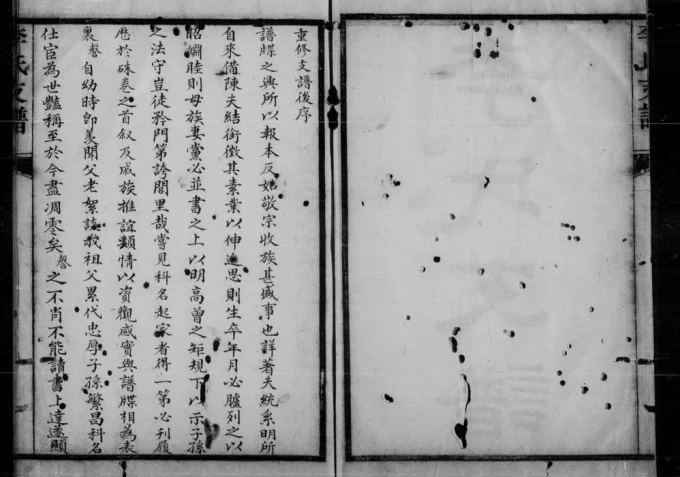 李氏支譜
重修支譜後序
譜牒之興所以報本反始敬宗收族甚盛事也詳著夫統系明所
自來備陳夫結銜徵其素業以伸追思則生卒年月必臚列之以
昭嫺睦則母族妻黨必並書之上以明高曾之矩規下以示子孫
之法守豈徒矜門第誇閥里哉嘗見科名起家者得一第必刊履
歷於硃卷之首叙及戚族推誼類情以資觀感實與譜牒相為表
裏謦自幼時即羨聞父老絮語我祖父累代忠厚子孫繁昌科名
仕宦為世豔稱至於今盡凋零矣謦之不肖不能讀書上達遂顯
李氏支譜